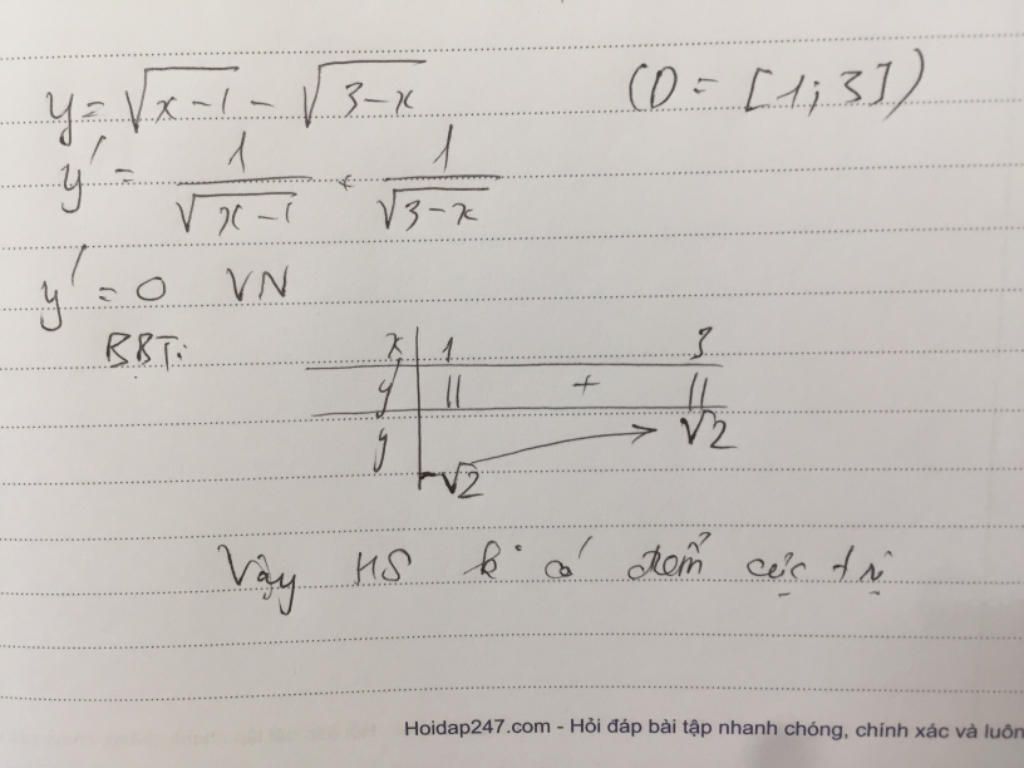 y = √(x-1) - √(3-x) (D = [1; 3])
y' = 1/√(x-1) + 1/√(3-x)
y' = 0 VN
BBT:
x 1 3
y' || + ||
y -√2 √2
Vậy HS k có điểm cực trị
Hoidap247.com - Hỏi đáp bài tập nhanh chóng, chính xác và luôn